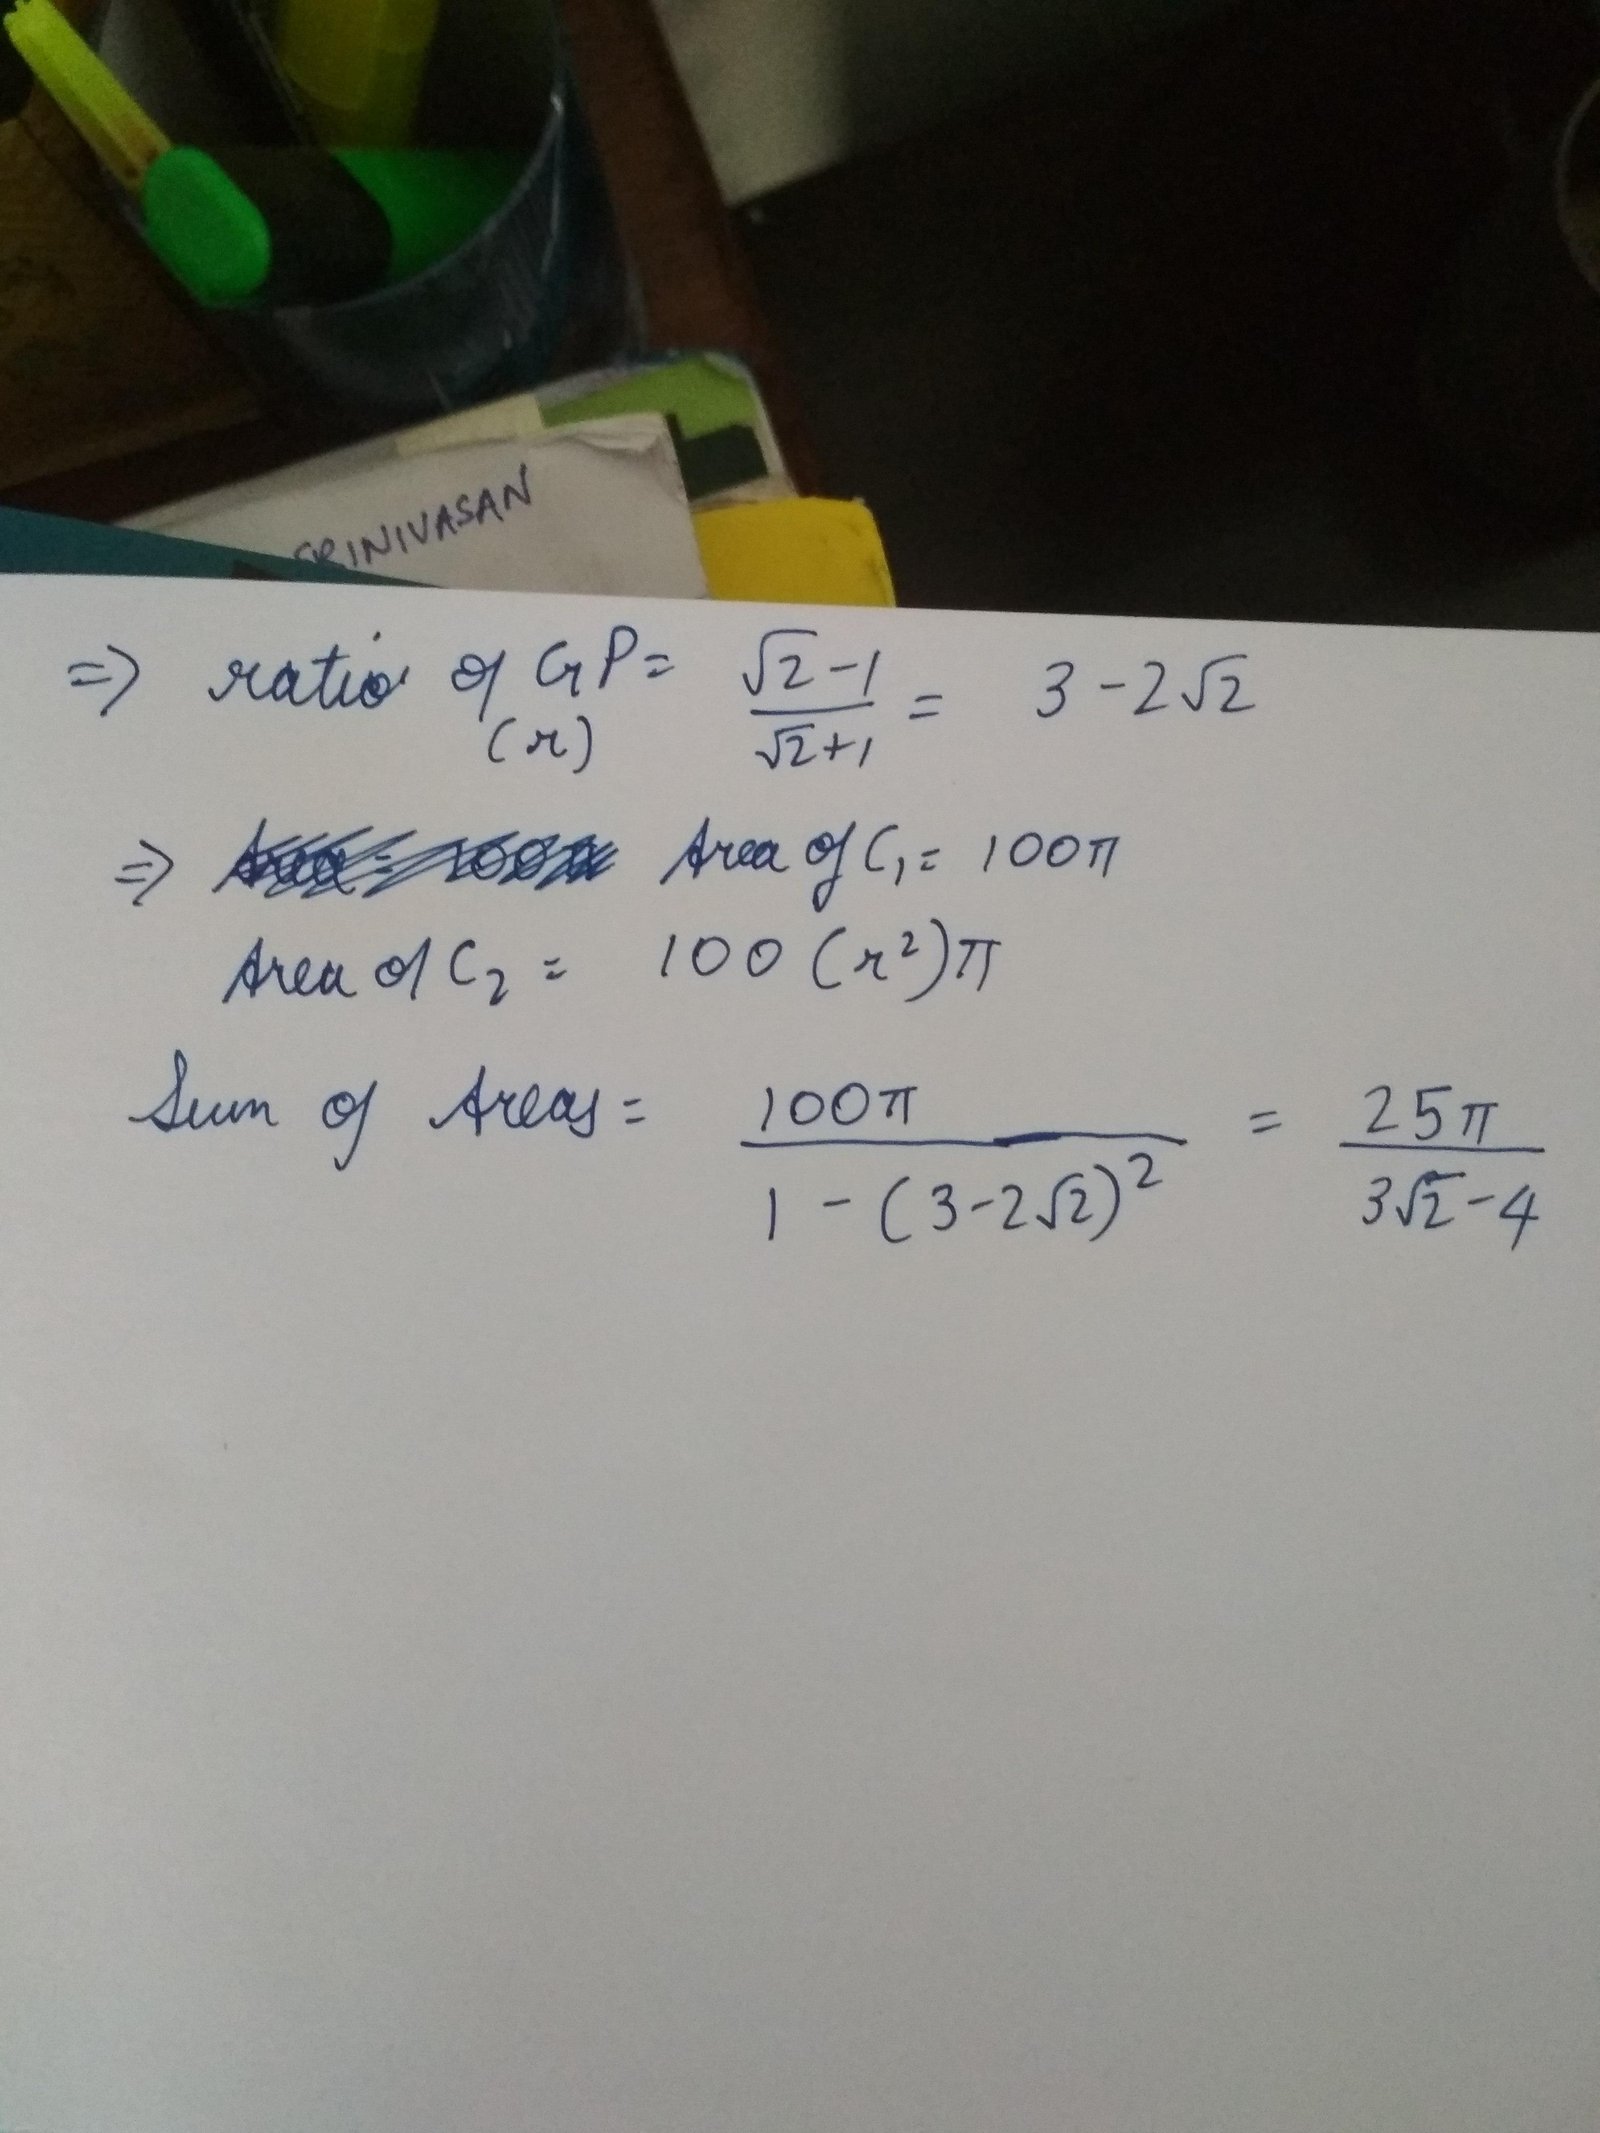 SRINIVASAN
=> ratio of GP = √2-1/√2+1 = 3-2√2
(r)
=> Area of C₁ = 100π
Area of C₂ = 100(r²)π
Sum of Areas = 100π/1-(3-2√2)² = 25π/3√2-4